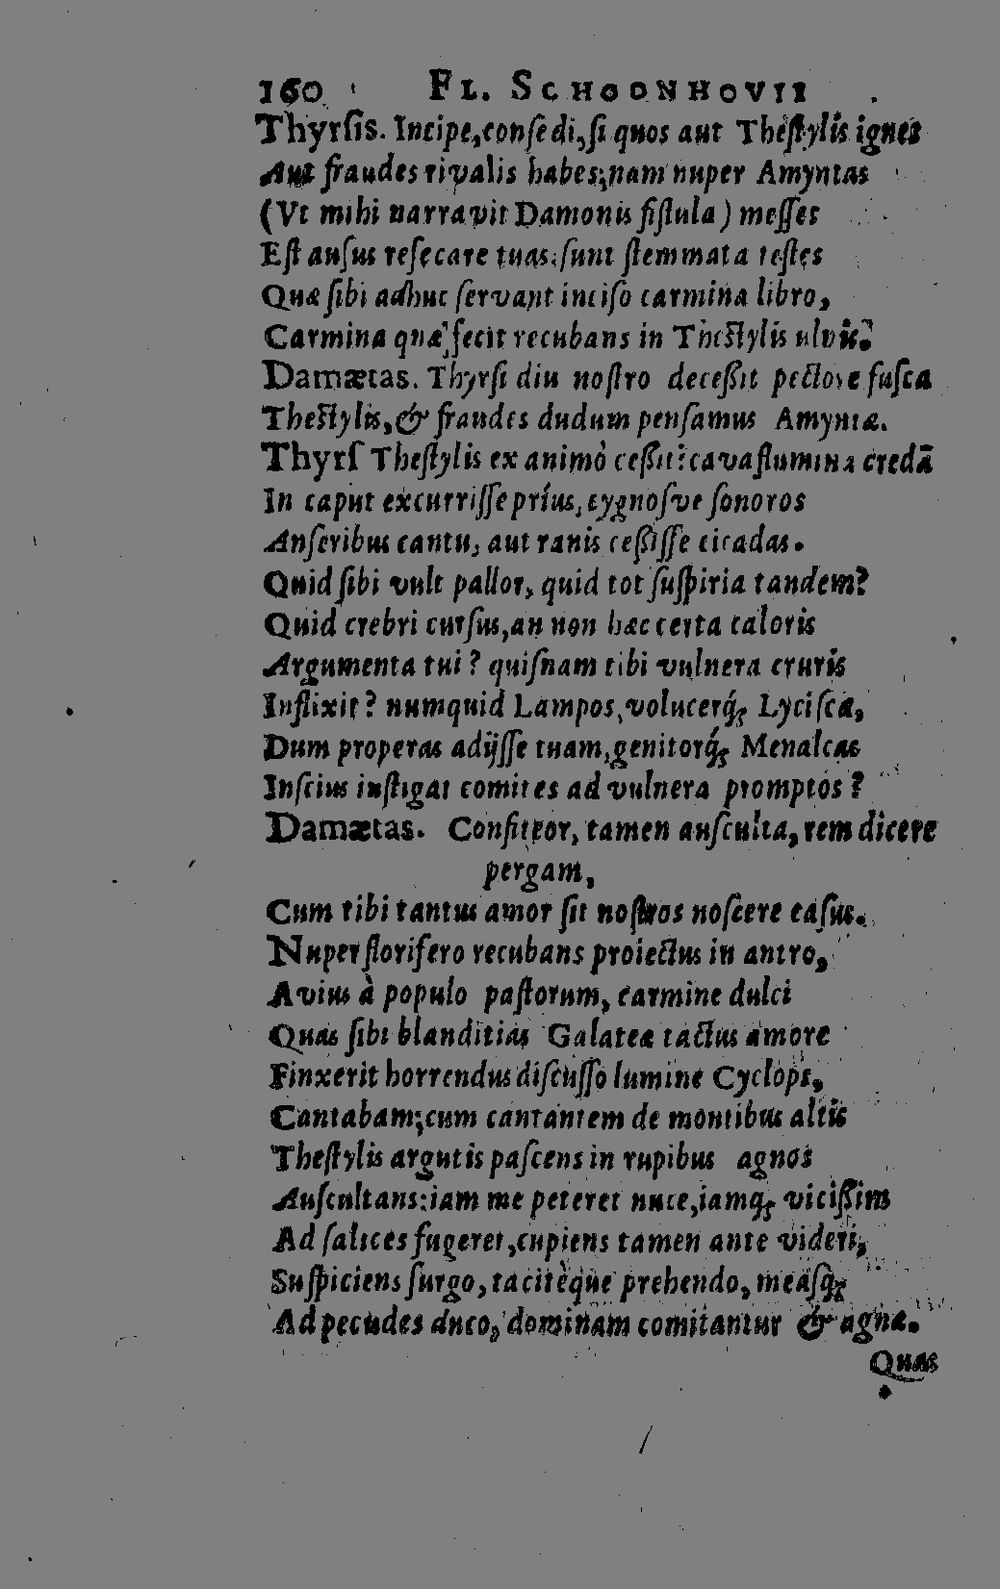 160 FL. SCHOONHOVII
Thyrſis. Incipe, conſedi, ſi quos aut Theſtylis ignes
Aut fraudes rivalis habes; nam nuper Amyntas
(Vt mihi narravit Damonis fiſtula) meſſes
Eſt auſus reſecare tuas: ſunt ſtemmata teſtes
Quæ ſibi adhuc ſervant inciſo carmina libro,
Carmina quæ fecit recubans in Theſtylis ulvis.
Damætas. Thyrſi diu noſtro deceßit pectore fuſca
Theſtylis, & fraudes dudum penſamus Amyntæ.
Thyrſ Theſtylis ex animò ceßit? cava flumina credā
In caput excurriſſe priùs, cygnoſve ſonoros
Anſeribus cantu, aut ranis ceßiſſe cicadas.
Quid ſibi vult pallor, quid tot ſuſpiria tandem?
Quid crebri curſus, an non hæc certa caloris
Argumenta tui? quiſnam tibi vulnera cruris
Inflixit? numquid Lampos, volucerq́; Lyciſca,
Dum properas adijſſe tuam, genitorq́; Menalcas
Inſcius inſtigat comites ad vulnera promptos?
Damætas. Confiteor, tamen auſculta, rem dicere
pergam,
Cum tibi tantus amor ſit noſtros noſcere caſus.
Nuper florifero recubans proiectus in antro,
Avius à populo paſtorum, carmine dulci
Quas ſibi blanditias Galateæ tactus amore
Finxerit horrendus diſcuſſo lumine Cyclops,
Cantabam; cum cantantem de montibus altis
Theſtylis argutis paſcens in rupibus agnos
Auſcultans: iam me peteret nuce, iamq́; vicißim
Ad ſalices fugeret, cupiens tamen ante videri,
Suſpiciens ſurgo, tacitèque prehendo, meáſq́;
Ad pecudes duco, dominam comitantur & agnæ.
Quas